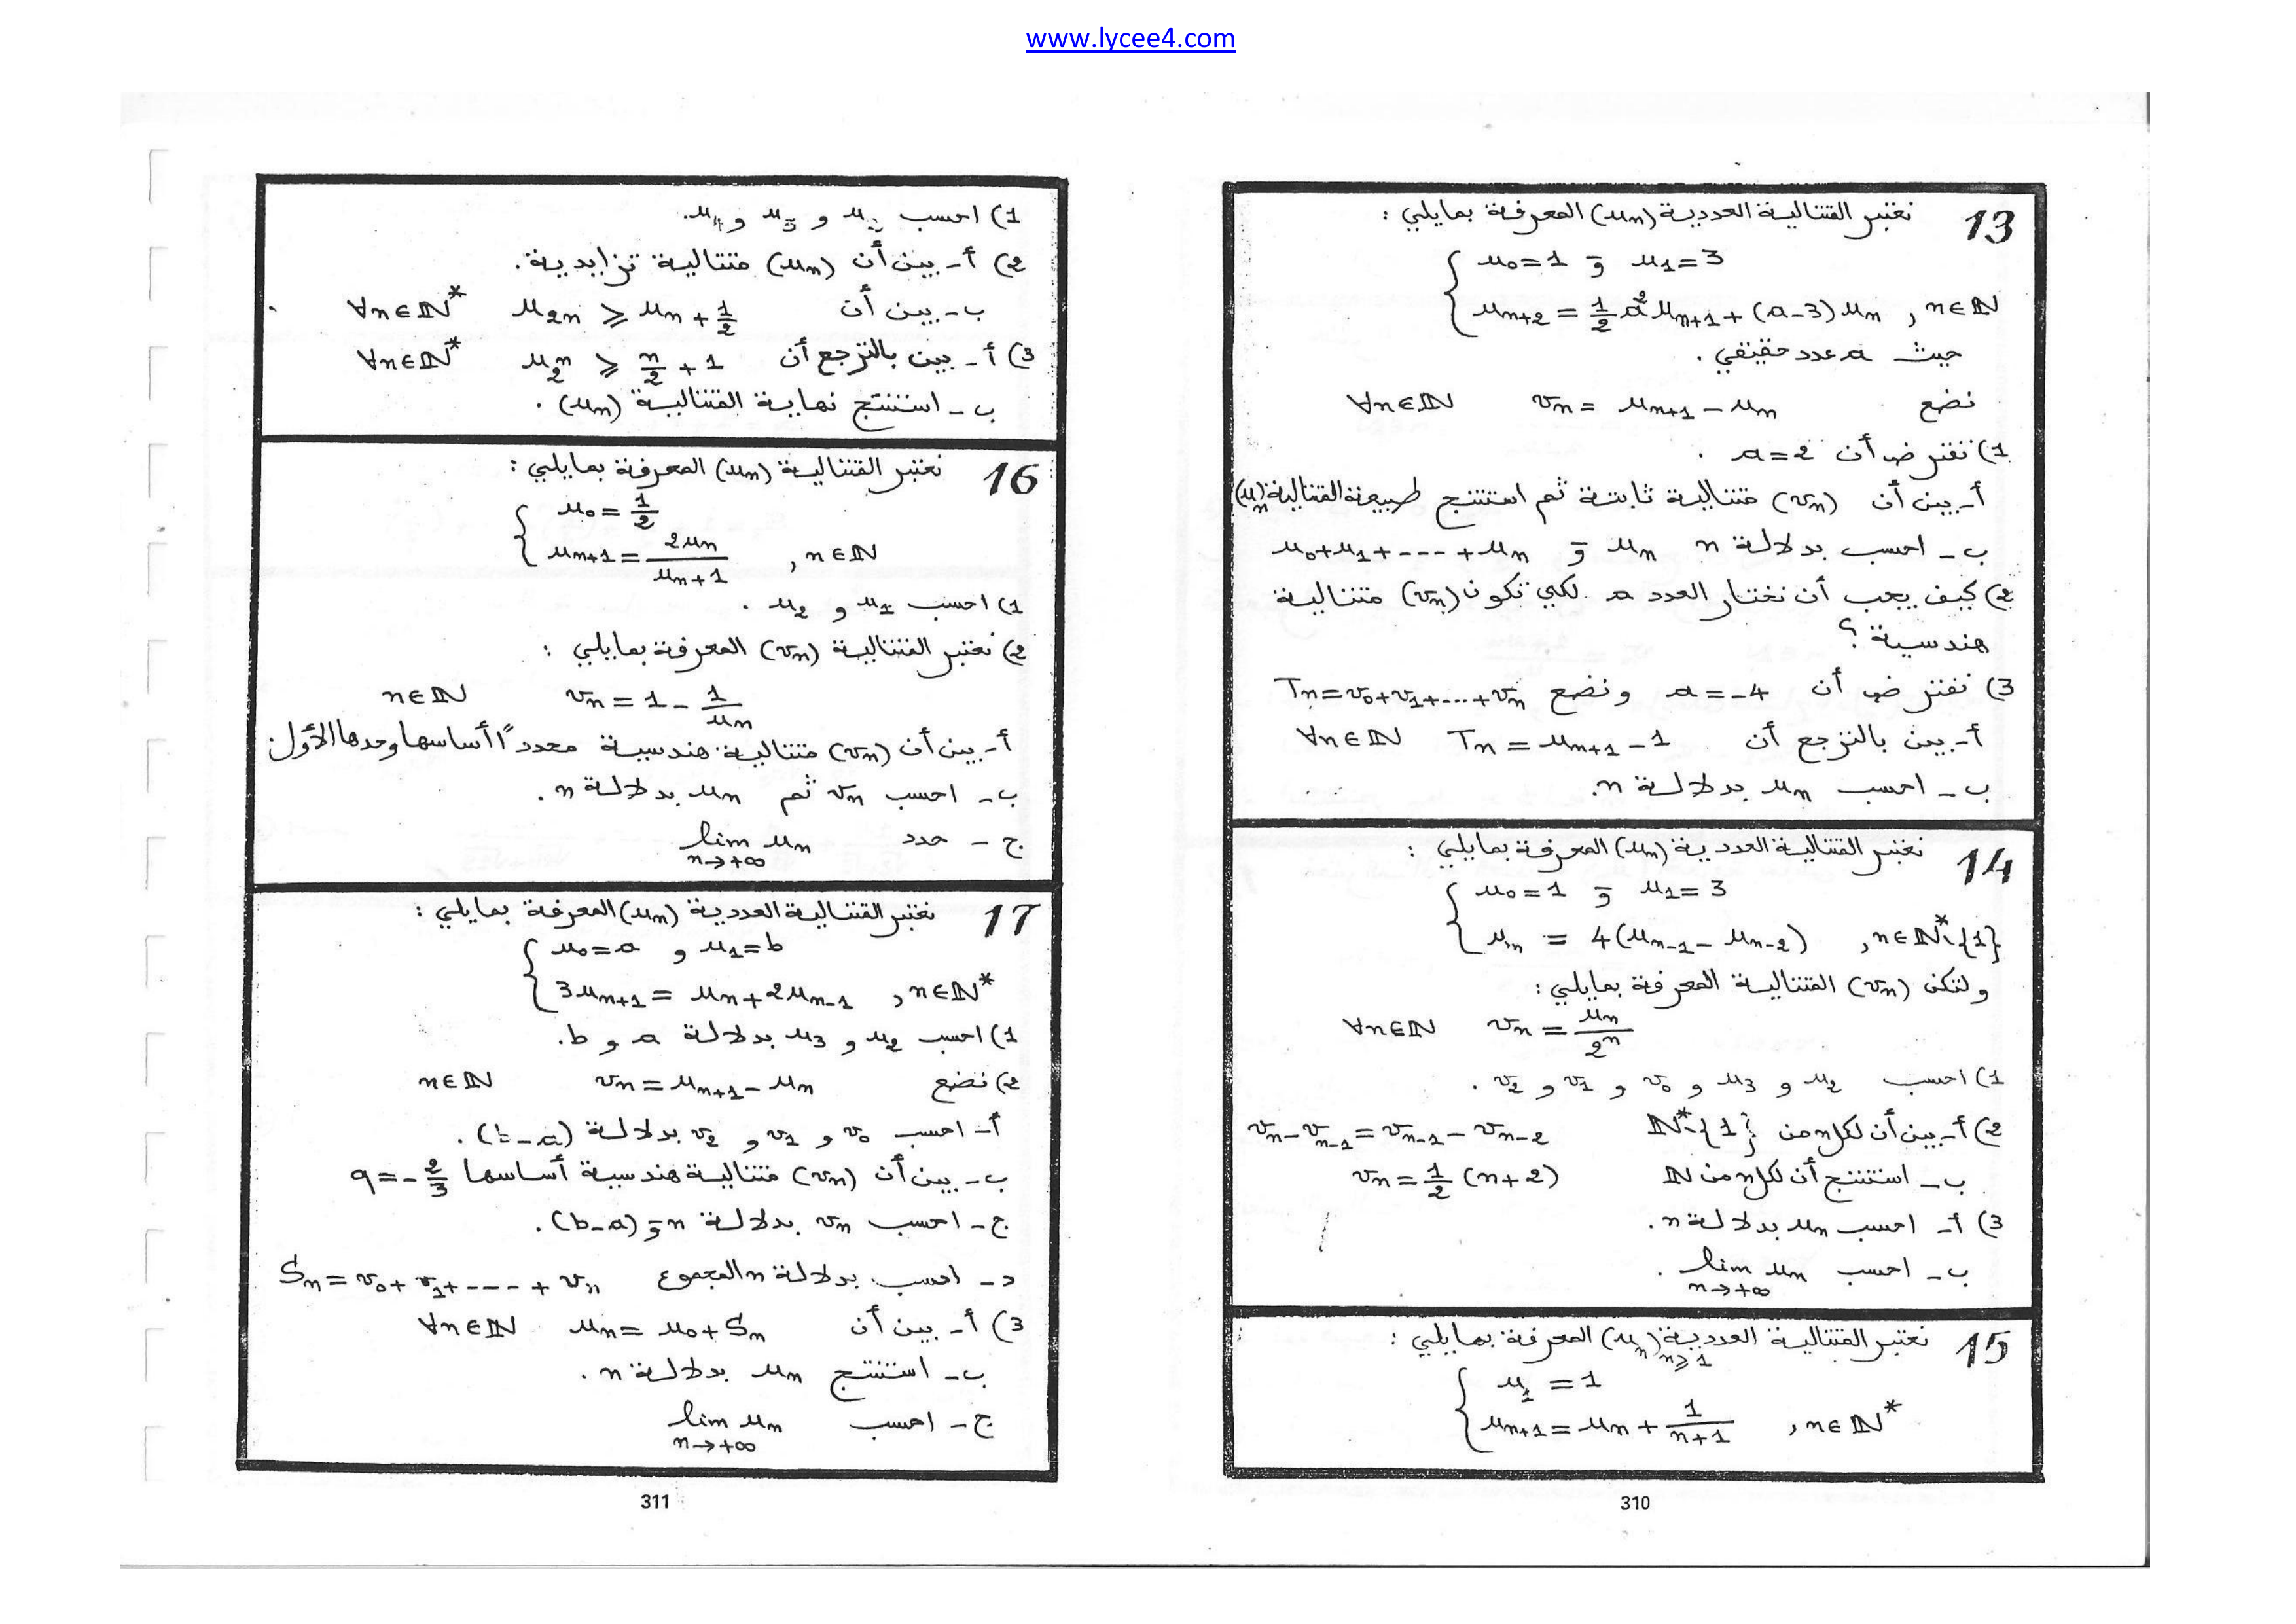 www.lycee4.com
13 نعتبر المتتالية العددية (uₙ) المعرفة بمايلي :
{ u₀ = 1 و u₁ = 3
uₙ₊₂ = 1/2 a² uₙ₊₁ + (a-3) uₙ , n∈ℕ
حيث a عدد حقيقي .
نضع vₙ = uₙ₊₁ - uₙ ∀n∈ℕ
1) نفترض أن a = 2 .
أ- بين أن (vₙ) متتالية ثابتة ثم استنتج طبيعة المتتالية (uₙ)
ب- احسب بدلالة n uₙ و u₀+u₁+----+uₙ
2) كيف يجب أن نختار العدد a لكي تكون (vₙ) متتالية
هندسية ؟
3) نفترض أن a = -4 ونضع Tₙ = v₀+v₁+...+vₙ
أ- بين بالترجع أن Tₙ = uₙ₊₁ - 1 ∀n∈ℕ
ب- احسب uₙ بدلالة n.
14 نعتبر المتتالية العددية (uₙ) المعرفة بمايلي :
{ u₀ = 1 و u₁ = 3
uₙ = 4(uₙ₋₁ - uₙ₋₂) , n∈ℕ*\{1}
ولتكن (vₙ) المتتالية المعرفة بمايلي :
∀n∈ℕ vₙ = uₙ/2ⁿ
1) احسب u₂ و u₃ و v₀ و v₁ و v₂ .
2) أ- بين أن لكل n من ℕ*\{1} vₙ - vₙ₋₁ = vₙ₋₁ - vₙ₋₂
ب- استنتج أن لكل n من ℕ vₙ = 1/2 (n+2)
3) أ- احسب uₙ بدلالة n.
ب- احسب lim uₙ n→+∞ .
15 نعتبر المتتالية العددية (uₙ)ₙ≥₁ المعرفة بمايلي :
{ u₁ = 1
uₙ₊₁ = uₙ + 1/(n+1) , n∈ℕ*
310
1) احسب u₂ و u₃ و u₄.
2) أ- بين أن (uₙ) متتالية تزايدية.
ب- بين أن u₂ₙ ≥ uₙ + 1/2 ∀n∈ℕ*
3) أ- بين بالترجع أن u_{2ⁿ} ≥ n/2 + 1 ∀n∈ℕ*
ب- استنتج نهاية المتتالية (uₙ) .
16 نعتبر المتتالية (uₙ) المعرفة بمايلي :
{ u₀ = 1/2
uₙ₊₁ = 2uₙ/(uₙ+1) , n∈ℕ
1) احسب u₁ و u₂ .
2) نعتبر المتتالية (vₙ) المعرفة بمايلي :
n∈ℕ vₙ = 1 - 1/uₙ
أ- بين أن (vₙ) متتالية هندسية محدداً أساسها وحدها الأول.
ب- احسب vₙ ثم uₙ بدلالة n.
ج- حدد lim uₙ n→+∞
17 نعتبر المتتالية العددية (uₙ) المعرفة بمايلي :
{ u₀ = a و u₁ = b
3uₙ₊₁ = uₙ + 2uₙ₋₁ , n∈ℕ*
1) احسب u₂ و u₃ بدلالة a و b.
2) نضع vₙ = uₙ₊₁ - uₙ n∈ℕ
أ- احسب v₀ و v₁ و v₂ بدلالة (b-a) .
ب- بين أن (vₙ) متتالية هندسية أساسها q = -2/3
ج- احسب vₙ بدلالة n و (b-a).
د- احسب بدلالة n المجموع Sₙ = v₀+v₁+----+vₙ
3) أ- بين أن uₙ = u₀ + Sₙ ∀n∈ℕ
ب- استنتج uₙ بدلالة n .
ج- احسب lim uₙ n→+∞
311